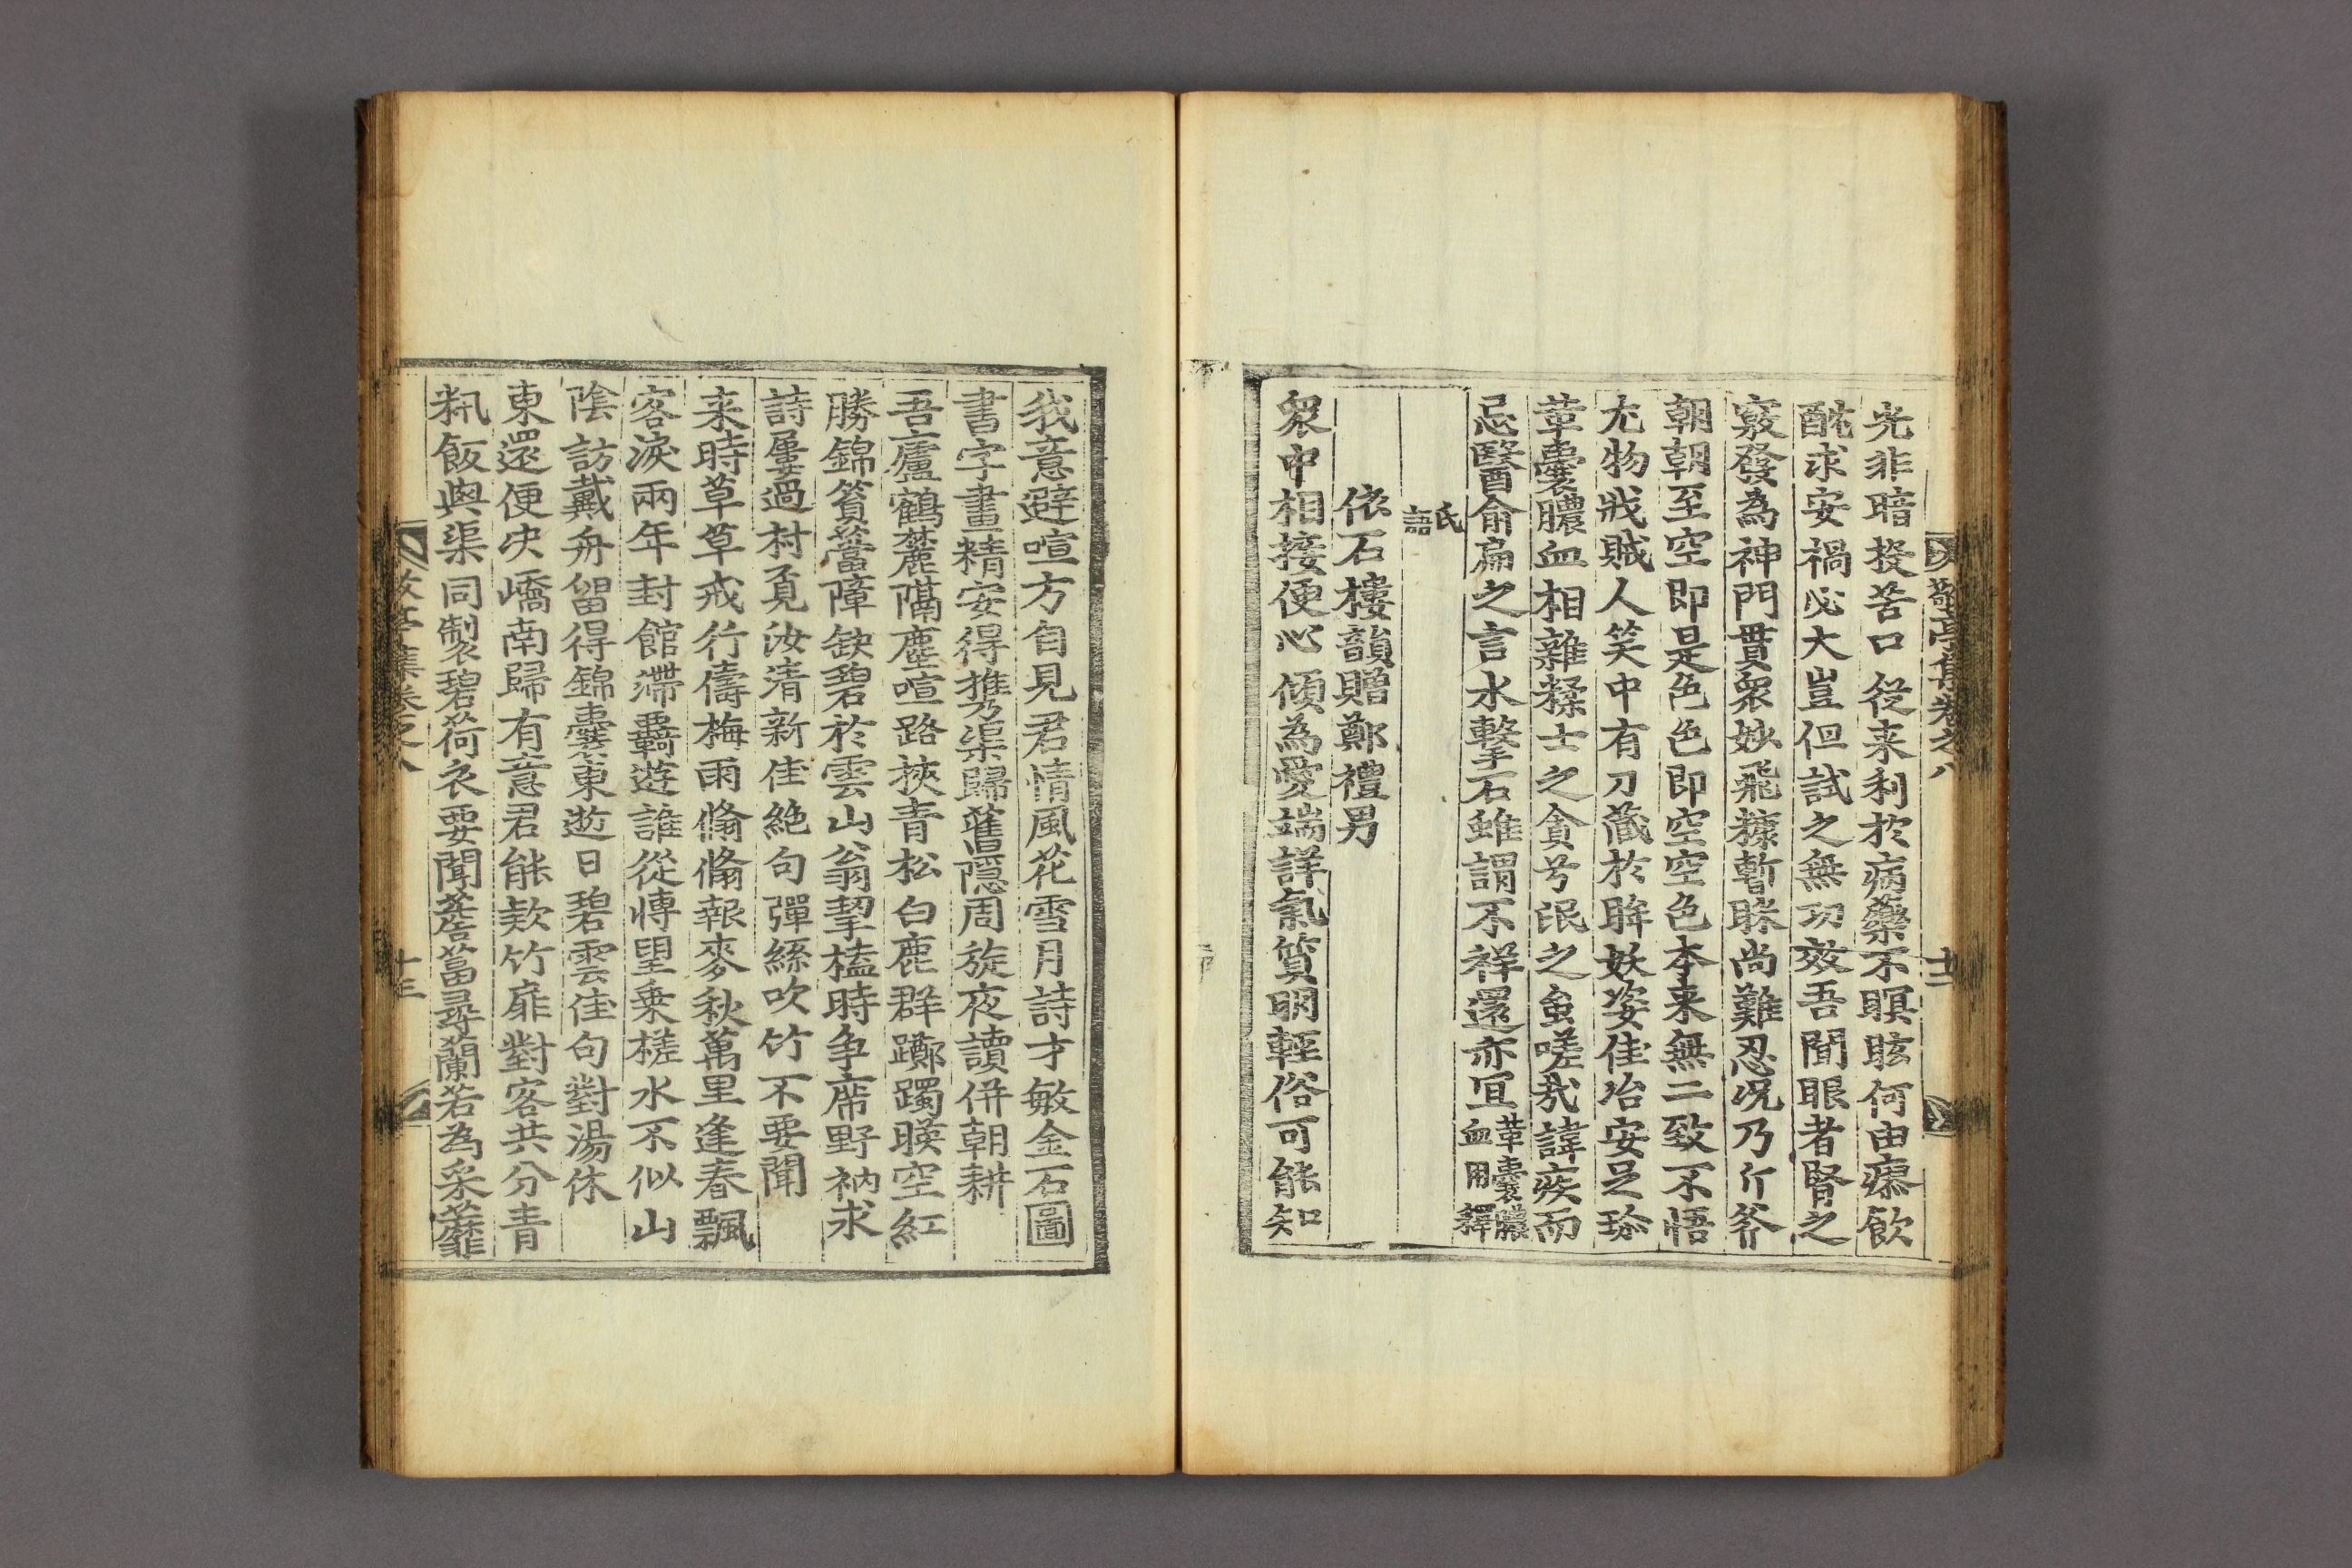 敬亭集卷之八
十二
光非暗投苦口從来利於病藥不瞑眩何由瘳飲
酖求安禍必大豈但試之無功效吾聞眼者腎之
竅發為神門貫衆妙飛糠暫眯尚難忍况乃斤斧
朝朝至空即是色色即空空色本来無二致不悟
尤物戕賊人笑中有刀藏於眸妖姿佳冶安足珍
革囊膿血相雜糅士之貪兮氓之蚩嗟哉諱疾而
忌醫兪扁之言水擊石雖謂不祥還亦冝革囊膿血用釋
氏語
依石樓韻贈鄭禮男
衆中相接便心傾為愛端詳氣質明輕俗可能知
我意避喧方自見君情風花雪月詩才敏金石圖
書字畫精安得推乃渠歸舊隱周旋夜讀併朝耕
吾廬鶴麓隔塵喧路挾青松白鹿群躑躅暎空紅
勝錦篔簹障缺碧於雲山翁挈榼時争席野衲求
詩屢過村覔汝清新佳絶句彈絲吹竹不要聞
来時草草戒行儔梅雨翛翛報麥秋萬里逢春飄
客淚兩年封館滯覊遊誰從博望乗槎水不似山
陰訪戴舟留得錦囊東逝日碧雲佳句對湯休
東還便决嶠南歸有意君能欵竹扉對客共分青
䊗飯與渠同製碧荷衣要聞薝蔔尋蘭若為采蘼
敬亭集卷之八
十三